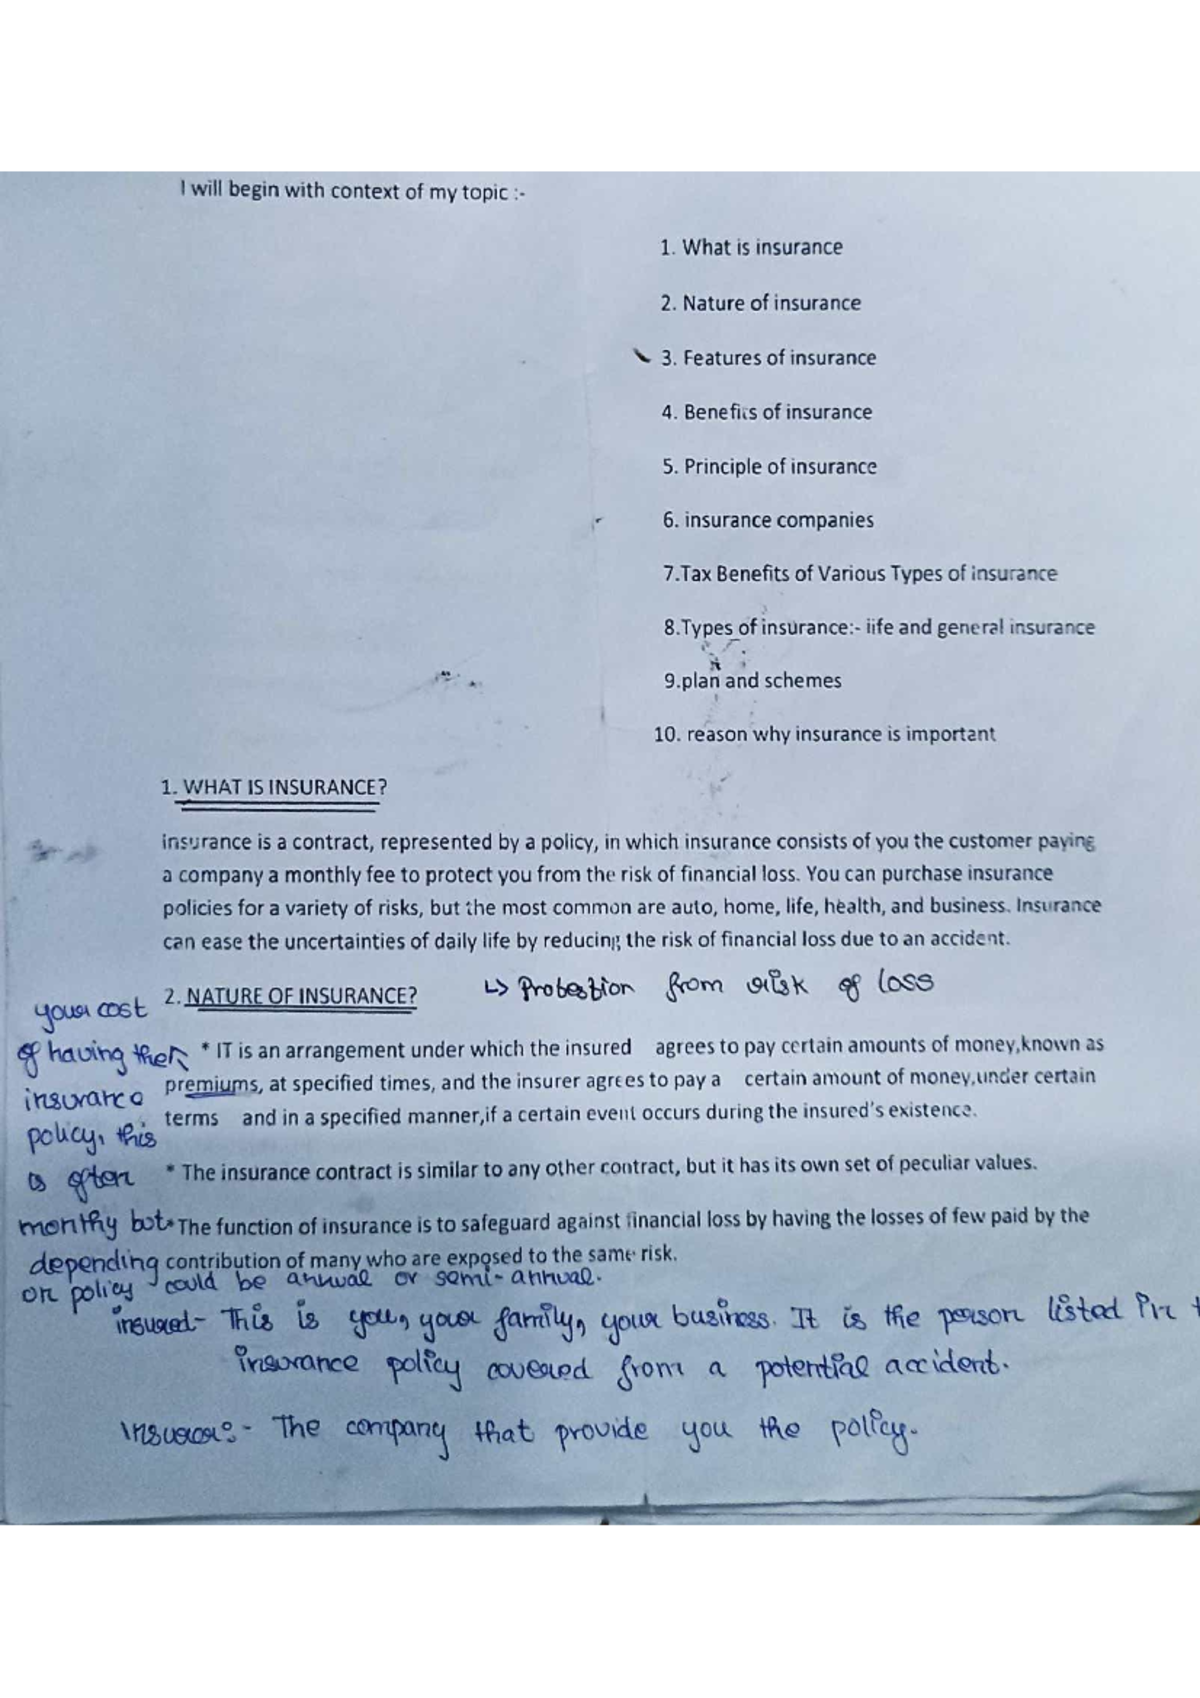 I will begin with context of my topic :-
1. What is insurance
2. Nature of insurance
3. Features of insurance
4. Benefits of insurance
5. Principle of insurance
6. insurance companies
7.Tax Benefits of Various Types of insurance
8.Types of insurance:- life and general insurance
9.plan and schemes
10. reason why insurance is important
1. WHAT IS INSURANCE?
insurance is a contract, represented by a policy, in which insurance consists of you the customer paying
a company a monthly fee to protect you from the risk of financial loss. You can purchase insurance
policies for a variety of risks, but the most common are auto, home, life, health, and business. Insurance
can ease the uncertainties of daily life by reducing the risk of financial loss due to an accident.
2. NATURE OF INSURANCE?
↳ Protestion from risk of loss
* IT is an arrangement under which the insured agrees to pay certain amounts of money,known as
premiums, at specified times, and the insurer agrees to pay a certain amount of money,under certain
terms and in a specified manner,if a certain event occurs during the insured's existence.
* The insurance contract is similar to any other contract, but it has its own set of peculiar values.
* The function of insurance is to safeguard against financial loss by having the losses of few paid by the
contribution of many who are exposed to the same risk.
your cost
of having the
insurance
policy, this
is often
monthy but
depending
on policy could be annual or semi-annual.
insured- This is you, your family, your business. It is the person listed in
insurance policy covered from a potential accident.
Insuror:- The company that provide you the policy.